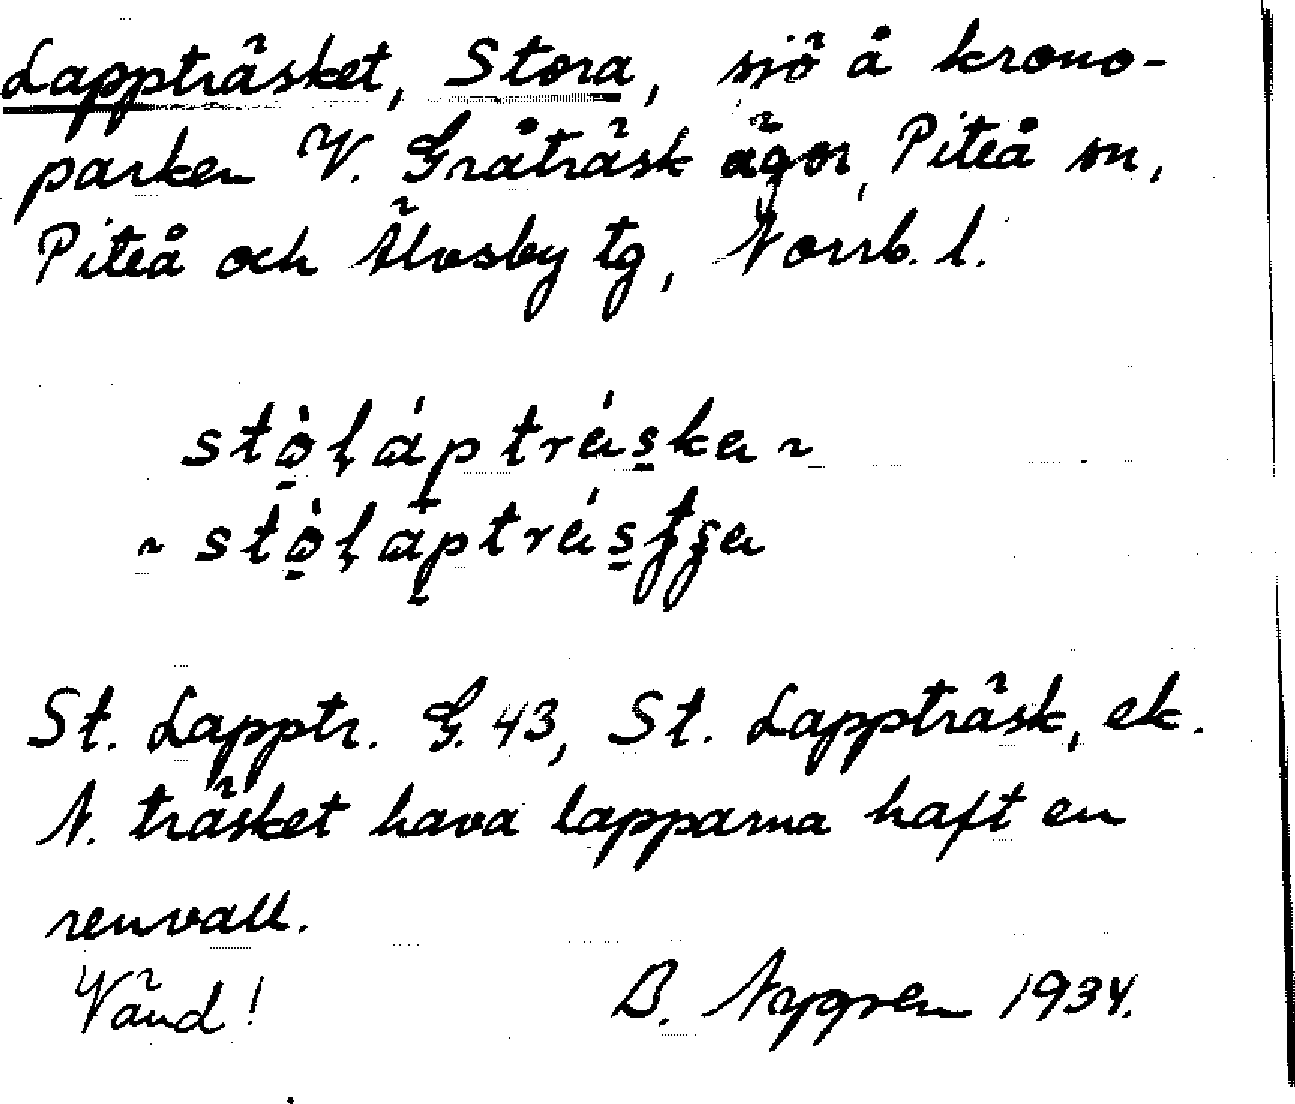 Lappträsket, Stora, sjö å krono-
parken V. Gråträsk ägor, Piteå sn,
Piteå och Älvsby tg, Norrb. l.
St. Lapptr. G. 43, St. Lappträsk, ek.
N. träsket hava lapparna haft en
renvall.
Vänd! B. Nygren 1934.